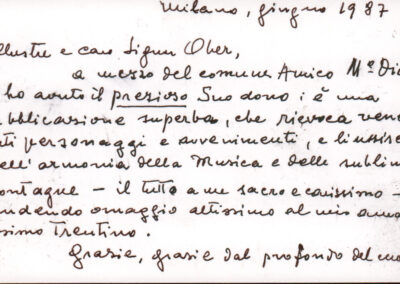 Milano, giugno 1987
llustre e caro Signor Ober,
a mezzo del comune Amico Mº Dio
ho avuto il prezioso Suo dono: è una
bblicazione superba, che rievoca vene
ati personaggi e avvenimenti, e li unisce
ell'armonia della Musica e delle sublim
ontagne - il tutto a me sacro e carissimo -
endendo omaggio altissimo al mio ama
issimo Trentino.
Grazie, grazie dal profondo del cuo